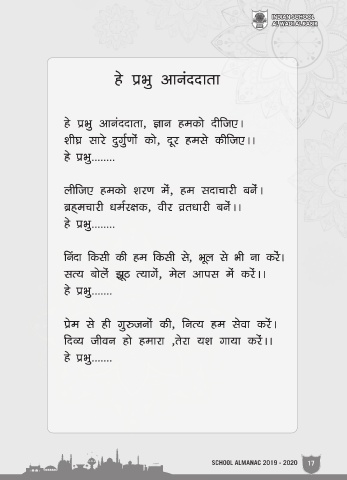 INDIAN SCHOOL
AL WADI AL KABIR
हे प्रभु आनंददाता
हे प्रभु आनंददाता, ज्ञान हमको दीजिए।
शीघ्र सारे दुर्गुणों को, दूर हमसे कीजिए।।
हे प्रभु........
लीजिए हमको शरण में, हम सदाचारी बनें।
ब्रह्मचारी धर्मरक्षक, वीर व्रतधारी बनें।।
हे प्रभु........
निंदा किसी की हम किसी से, भूल से भी ना करें।
सत्य बोलें झूठ त्यागें, मेल आपस में करें।।
हे प्रभु.......
प्रेम से ही गुरुजनों की, नित्य हम सेवा करें।
दिव्य जीवन हो हमारा ,तेरा यश गाया करें।।
हे प्रभु.......
SCHOOL ALMANAC 2019 - 2020 17